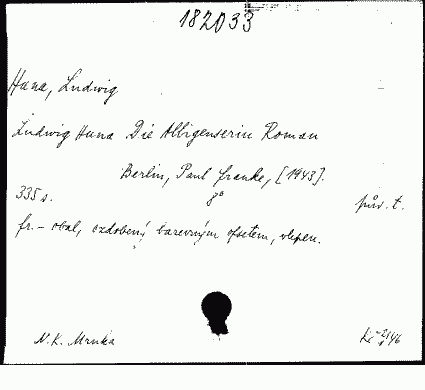 182033
Huna, Ludwig
Ludwig Huna Die Albigenserin Roman
Berlin, Paul Franke, [1943].
335 s. 8° pův. t.
fr. - obal, ozdobený barevným ofsetem, vlepen.
N. K. Mrnka